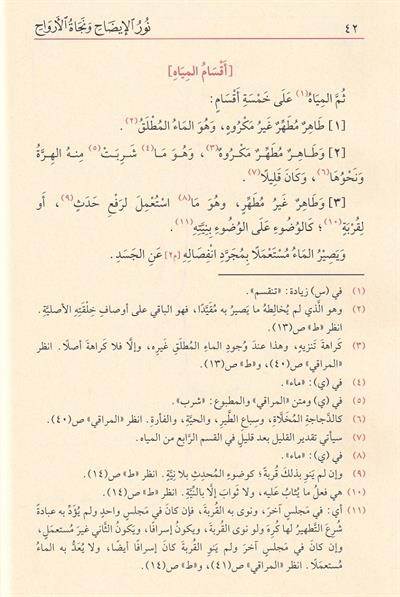 ٤٢ نُورُ الْإِيضَاحِ وَنَجَاةُ الْأَرْوَاحِ
[أَقْسَامُ المِيَاهِ]
ثُمَّ المِيَاهُ(١) عَلَى خَمْسَةِ أَقْسَامٍ:
[١] طَاهِرٌ مُطَهِّرٌ غَيرُ مَكْرُوهٍ، وَهُوَ المَاءُ المُطْلَقُ(٢).
[٢] وَطَاهِرٌ مُطَهِّرٌ مَكْرُوهٌ(٣)، وَهُوَ مَا(٤) شَرِبَتْ(٥) مِنهُ الهِرَّةُ
وَنَحْوُهَا(٦)، وَكَانَ قَلِيلًا(٧).
[٣] وَطَاهِرٌ غَيرُ مُطَهِّرٍ، وَهُوَ مَا(٨) اسْتُعْمِلَ لِرَفْعِ حَدَثٍ(٩)، أَو
لِقُرْبَةٍ(١٠)؛ كَالوُضُوءِ عَلَى الوُضُوءِ بِنِيَّتِهِ(١١).
وَيَصِيْرُ المَاءُ مُسْتَعْمَلًا بِمُجَرَّدِ انْفِصَالِهِ [م٢] عَنِ الجَسَدِ.
(١) في (س) زيادة: «تنقسم».
(٢) وهو الَّذي لم يُخالِطهُ ما يَصيرُ به مُقَيَّدًا، فهو الباقي على أوصافِ خِلْقَتِهِ الأصليَّةِ.
انظر «ط» ص(١٣).
(٣) كَراهةَ تَنزيهٍ، وهذا عندَ وُجودِ الماءِ المُطلَقِ غيرِه، وإلَّا فلا كَراهةَ أصلًا. انظر
«المراقي» ص(٤٠)، و«ط» ص(١٣).
(٤) في (ي): «ماء».
(٥) في (ي) ومتن «المراقي» والمطبوع: «شرب».
(٦) كالدَّجاجةِ المُخَلَّاةِ، وسِباعِ الطَّيرِ، والحيَّةِ، والفأرةِ. انظر «المراقي» ص(٤٠).
(٧) سيأتي تقدير القليل بعد قليلٍ في القسم الرَّابع من المياه.
(٨) في (ي): «ماء».
(٩) وإن لم يَنوِ بذلكَ قُربةً؛ كوضوءِ المُحدِثِ بلا نِيَّةٍ. انظر «ط» ص(١٤).
(١٠) هي فعلُ ما يُثابُ عليه، ولا ثوابَ إلَّا بالنِّيَّةِ. انظر «ط» ص(١٤).
(١١) أي: في مَجلسٍ آخرَ، ونوى به القُربةَ، فإن كانَ في مجلسٍ واحدٍ ولم يُؤَدِّ به عبادةً
شُرِعَ التَّطهيرُ لها كُرِهَ ولو نوى القُربةَ، ويكونُ إسرافًا، ويَكونُ الثَّاني غيرَ مستعمَلٍ،
وإن كانَ في مجلسٍ آخرَ ولم يَنوِ القُربةَ كانَ إسرافًا أيضًا، ولا يُعَدُّ به الماءُ
مُستعمَلًا. انظر «المراقي» ص(٤١)، و«ط» ص(١٤).